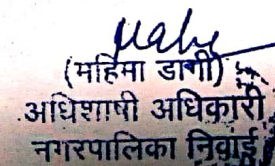 (महिमा डांगी)
अधिशाषी अधिकारी
नगरपालिका निवाई